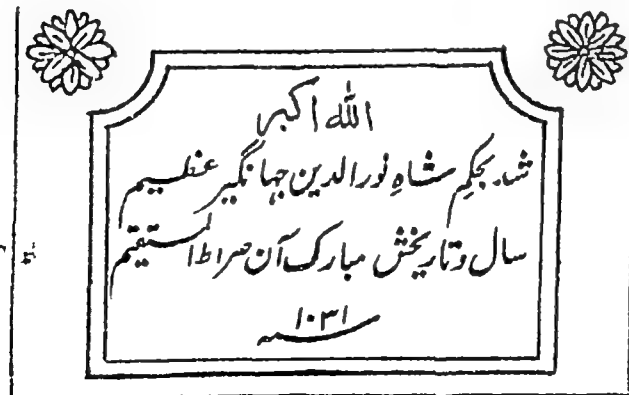 اللہ اکبر
شد بحکمِ شاہِ نورالدین جہانگیر عظیم
سال و تاریخش مبارک آن صراط المستقیم
۱۰۳۱